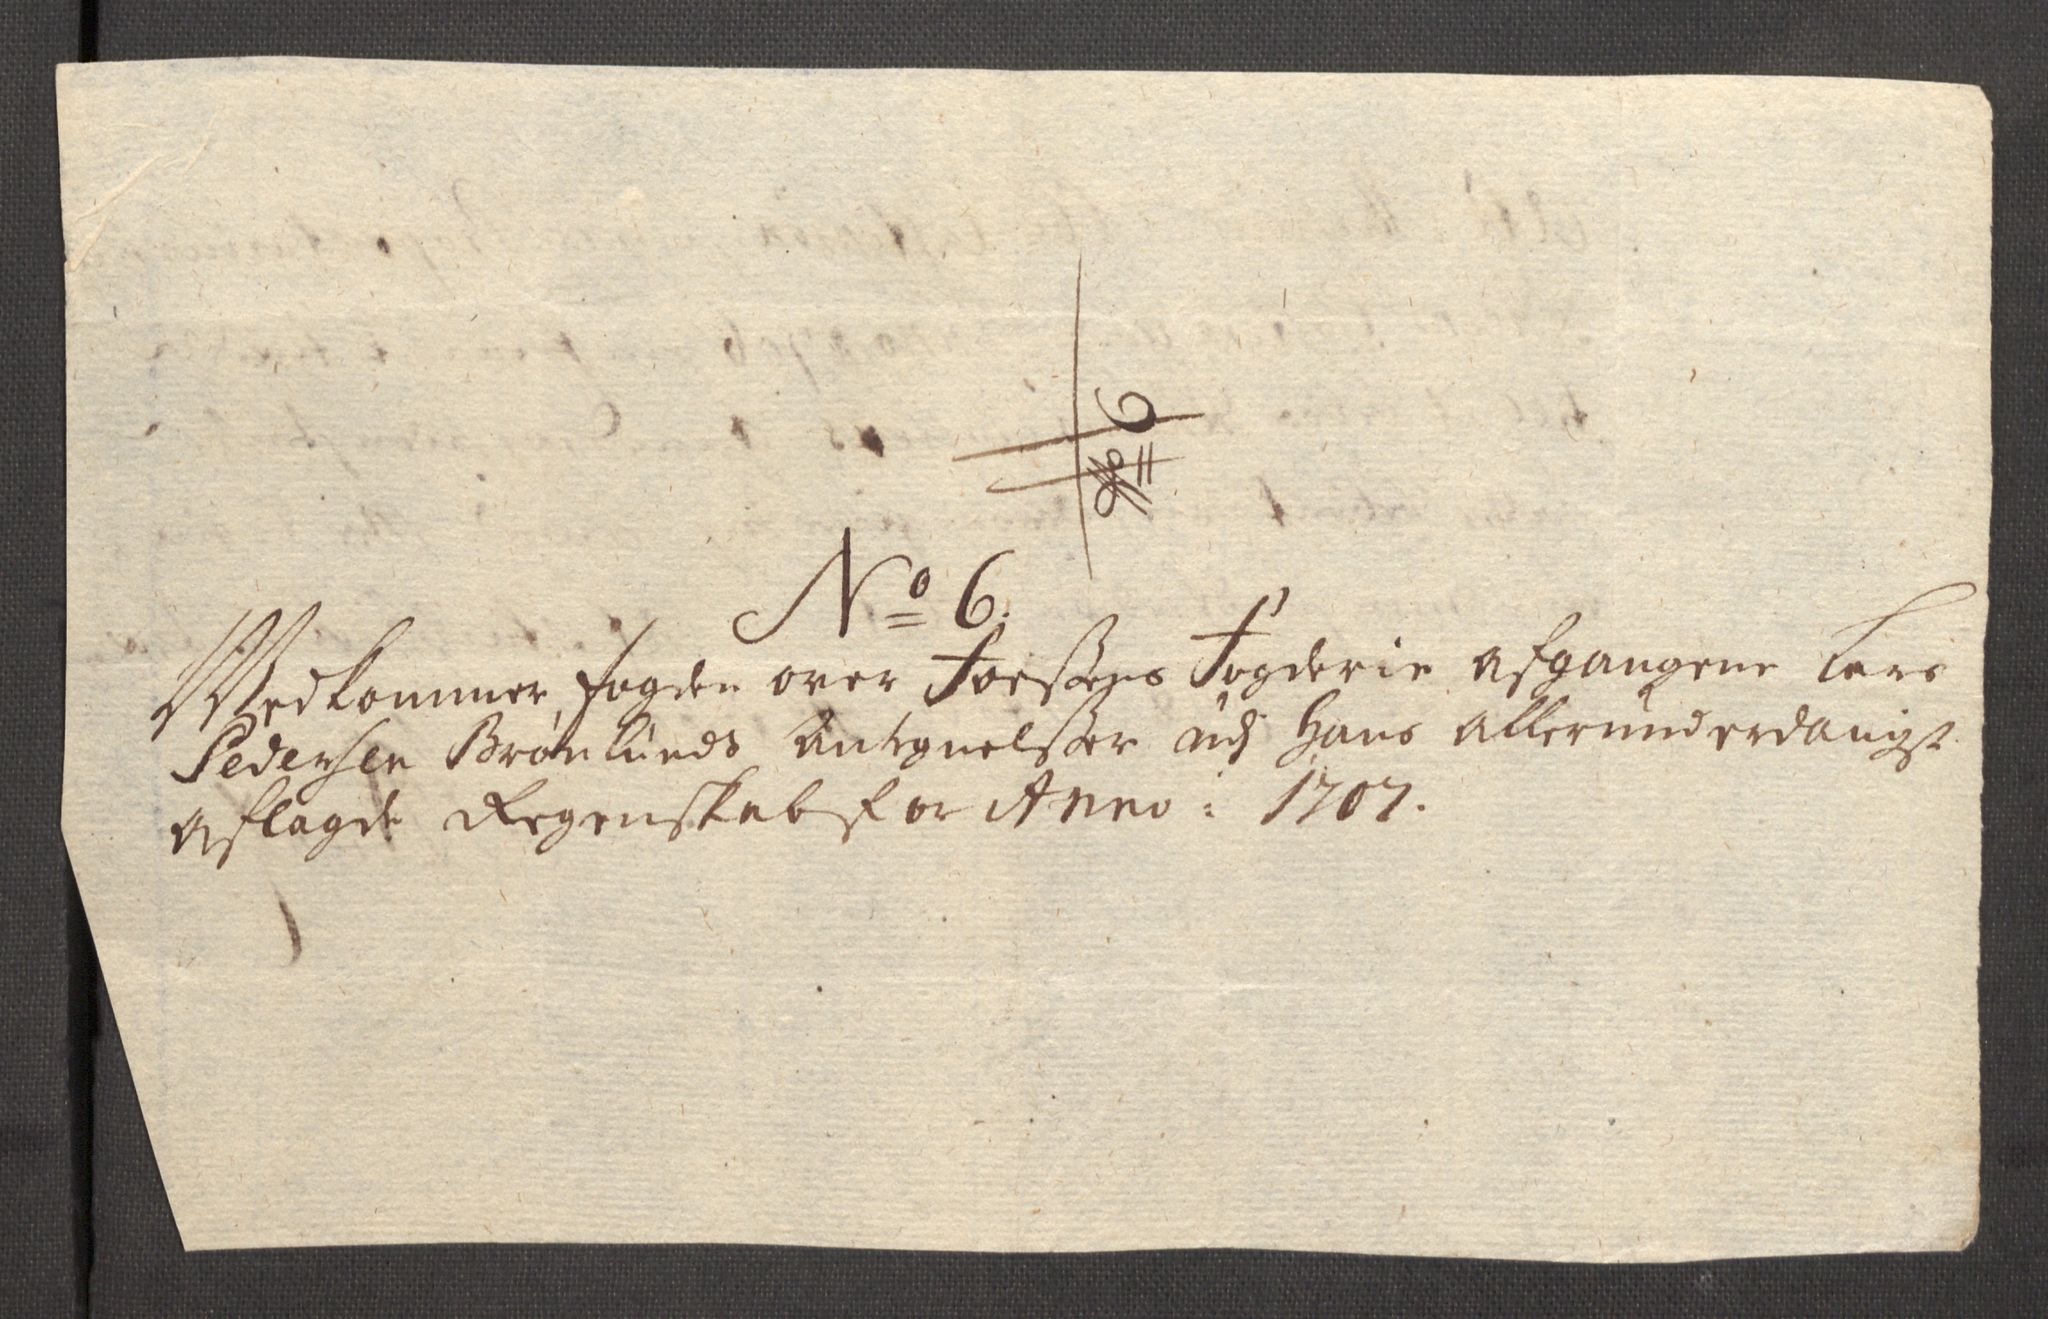 No 6
No 6.
Vedkommer, fogden over Foessens Fogderie afgangene Lars
Pedersen Brønlunds Antegnelsser udj Hans allerunderdanigst
aflagde Regenskab for Anno: 1707.